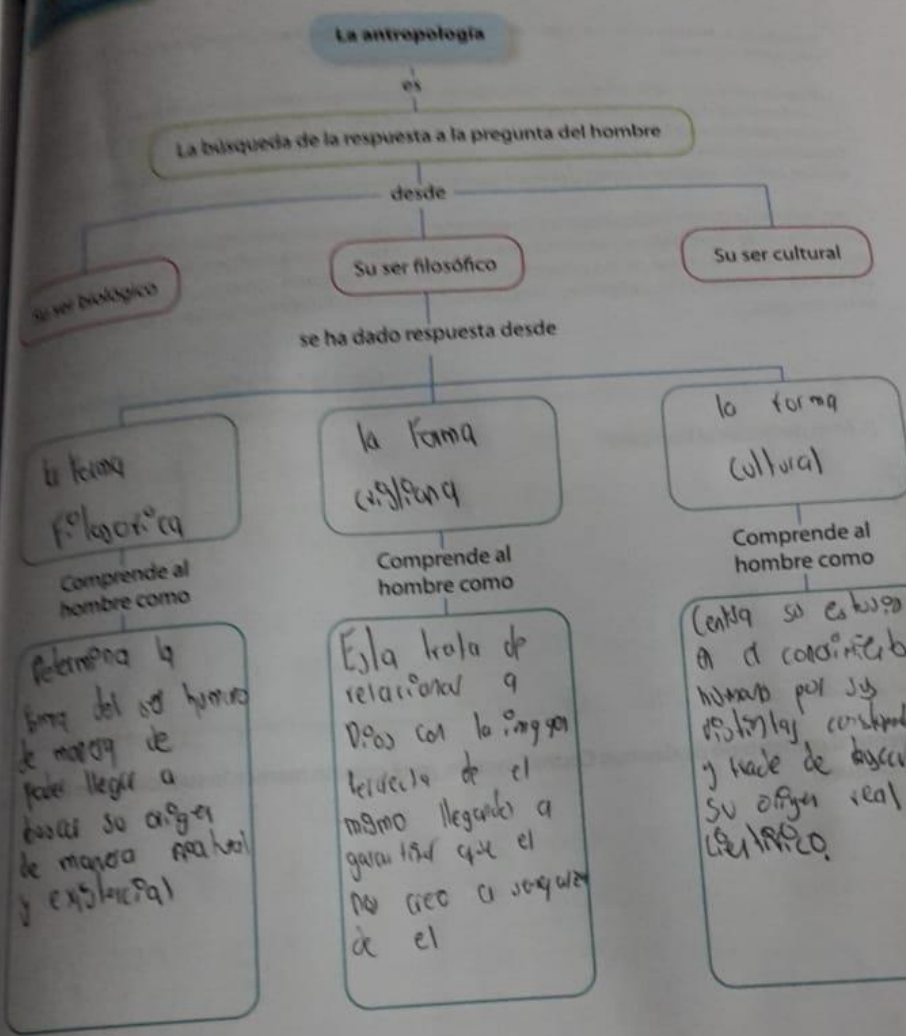 La antropología
es
La búsqueda de la respuesta a la pregunta del hombre
desde
Su ser biológico
Su ser filosófico
Su ser cultural
se ha dado respuesta desde
la forma
filosofica
la forma
cristiana
la forma
cultural
Comprende al
hombre como
Comprende al
hombre como
Comprende al
hombre como
Determina la
del ser humano
de manera de
poder llegar a
buscar su origen
de manera
y existencial
Esta trata de
relacionar a
Dios con la
de el
mismo llegando a
que el
nos creo a
de el
Centra su
en el
humano por sus
distintas
y trade de buscar
su origen real